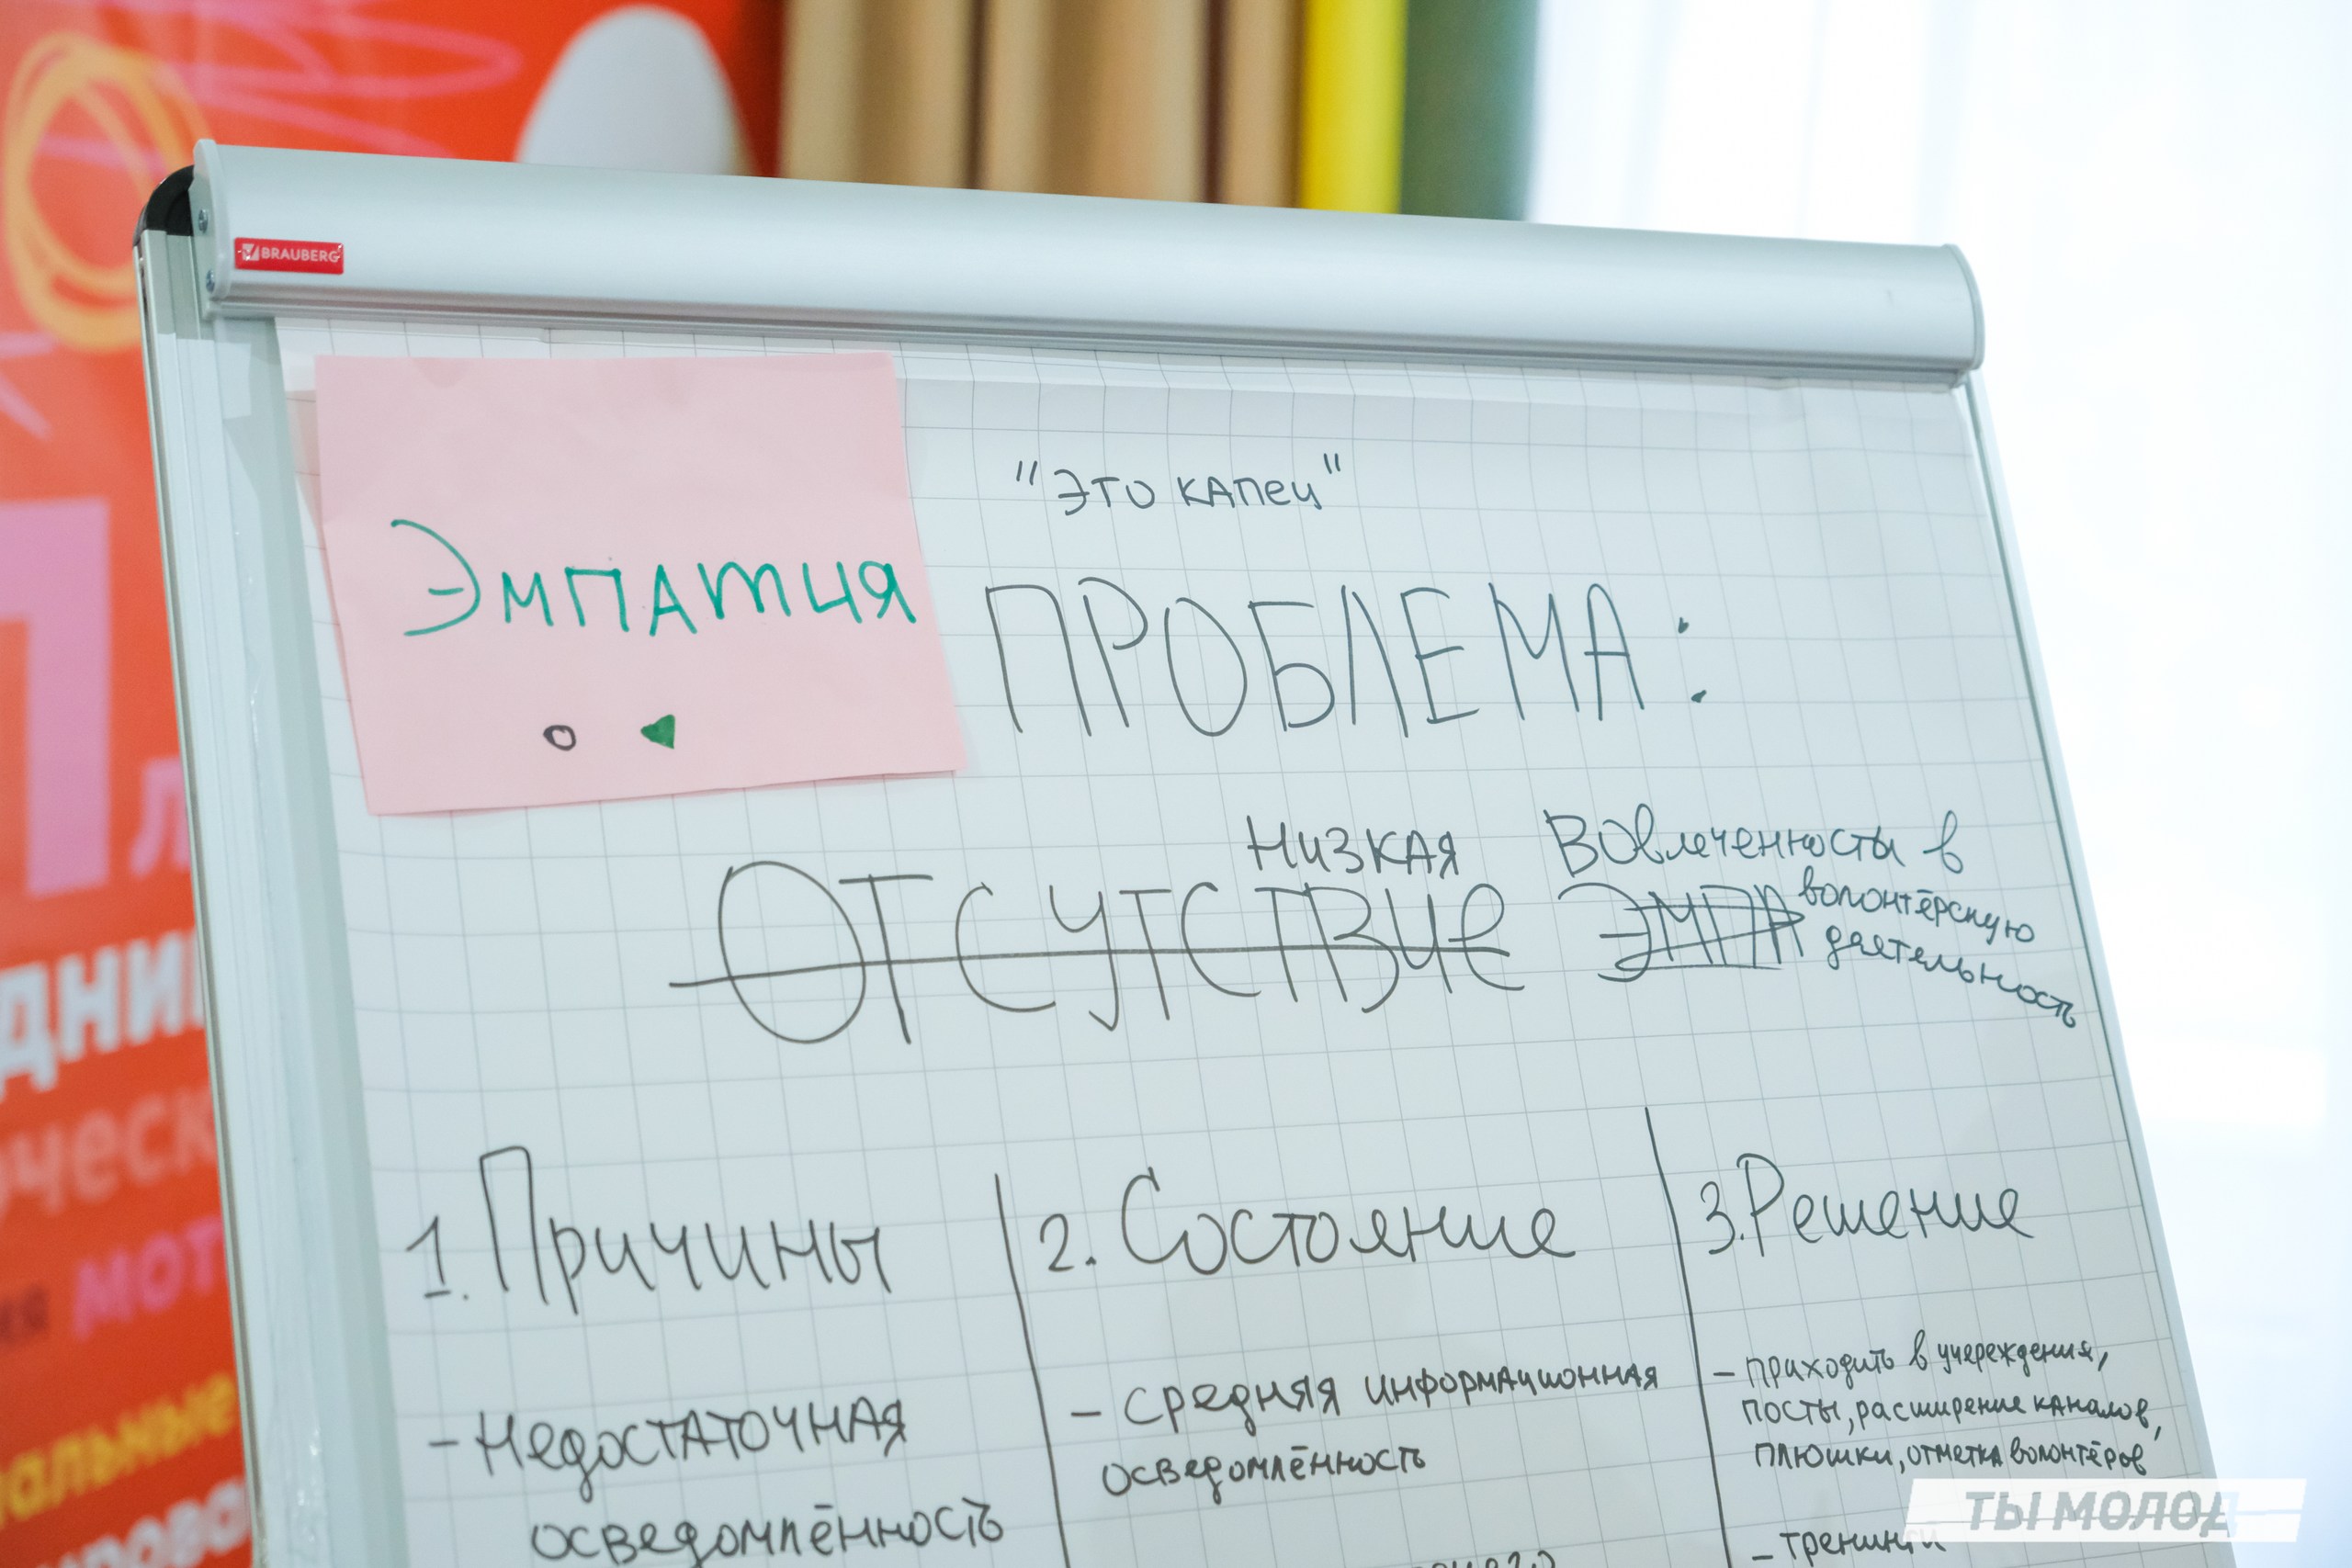 BRAUBERG
Эмпатия
"Это капец"
ПРОБЛЕМА:
Низкая Вовлеченность в
волонтёрскую
деятельность
ОТСУТСТВИЕ ЭМПА
1. Причины
- Недостаточная
осведомлённость
2. Состояние
- средняя информационная
осведомлённость
3. Решение
- приходить в учереждения,
посты, расширение каналов,
плюшки, отметка волонтёров
- тренинги
ТЫ МОЛОД